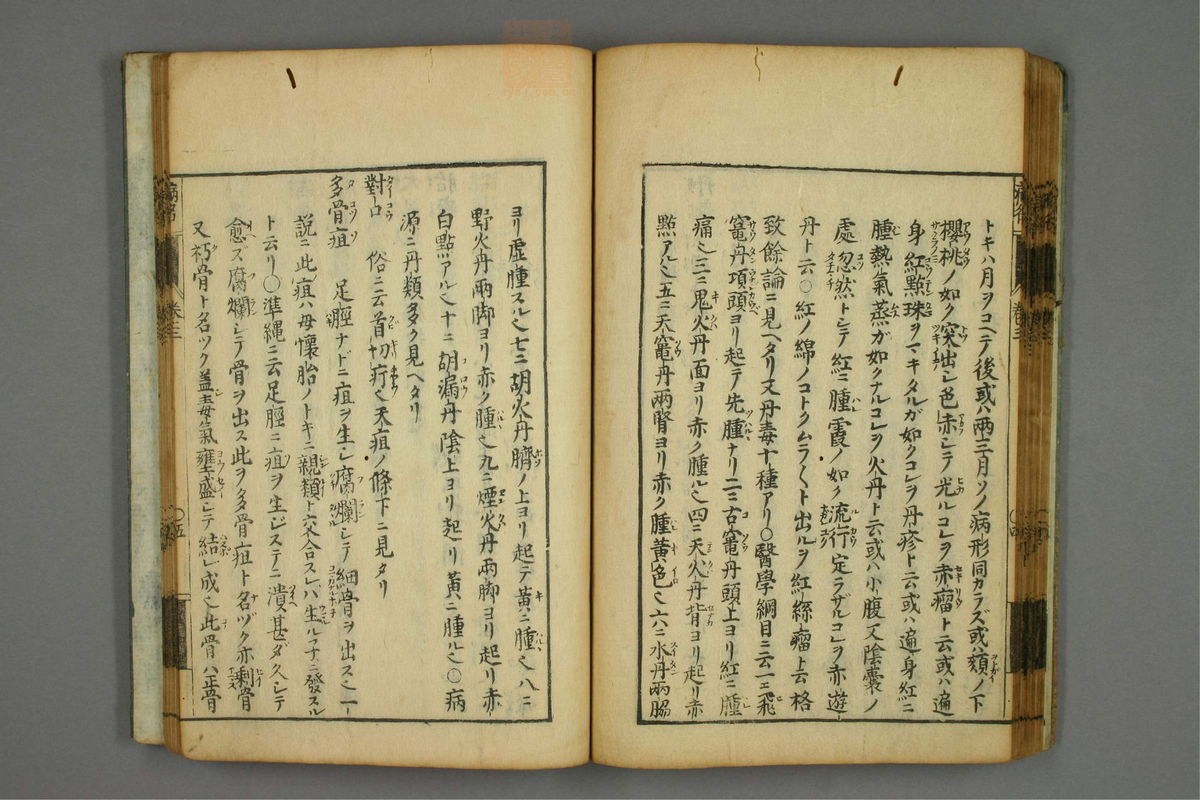 トキハ月ヲコヘテノ後或ハ兩三月ソノ病形同カラズ或ハ頷ノ下
櫻桃ノ如ク突出シ色赤シテ光ルコレヲ赤瘤ト云或ハ遍
身紅點珠ヲマキタルガ如クコレヲ丹疹ト云或ハ遍身紅ニ
腫熱氣蒸ガ如クナルコレヲ火丹ト云或ハ小腹又陰囊ノ
處忽然トシテ紅ニ腫霞ノ如ク流行定ラザルコレヲ赤遊
丹ト云○紅ノ綿ノコトクムラ〱ト出ルヲ紅絲瘤ト云格
致餘論ニ見ヘタリ又丹毒十種アリ○醫學綱目ニ云一ニ飛
竈丹項頭ヨリ起テ先腫ナリ二ニ古竈丹頭上ヨリ紅ニ腫
痛也三ニ鬼火丹面ヨリ赤ク腫ル也四ニ天火丹背ヨリ起リ赤
點アル也五ニ天竈丹兩腎ヨリ赤ク腫黄色也六ニ水丹兩脇
ヨリ虛腫スル也七ニ胡火丹臍ノ上ヨリ起テ黄ニ腫也八ニ
野火丹兩脚ヨリ赤ク腫也九ニ煙火丹兩脚ヨリ起リ赤
白點アル也十ニ胡漏丹陰上ヨリ起リ黄ニ腫ル也○病
源ニ丹類多ク見ヘタリ
對口 俗ニ云首切疔也天疽ノ條下ニ見タリ
多骨疽 足脛ナドニ疽ヲ生シ腐爛シテ細骨ヲ出ス也一
說ニ此疽ハ母懷胎ノトキニ親類ト交合スレバ生ルヽ子ニ發スル
ト云リ○準縄ニ云足脛ニ疽ヲ生ジステニ潰甚ダ久シテ
愈ズ腐爛シテ骨ヲ出ス此ヲ多骨疽ト名ヅク亦剩骨
又朽骨ト名ツク蓋毒氣壅盛シテ結ヒ成也此骨ハ正骨
卷三
卷三
五